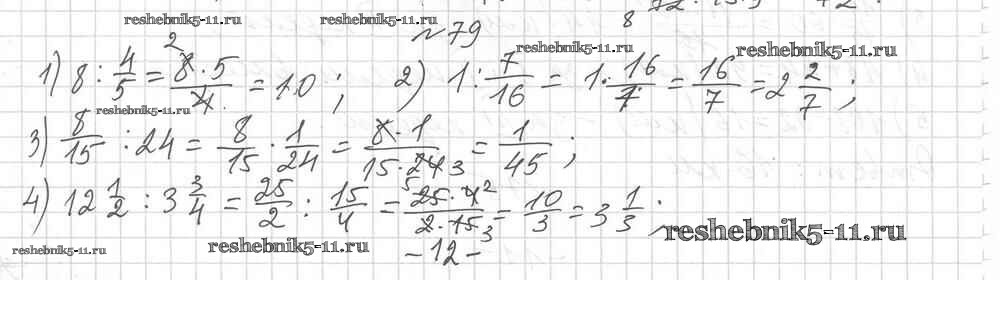 reshebnik5-11.ru reshebnik5-11.ru 8
№79 reshebnik5-11.ru reshebnik5-11.ru
1) 8 : 4/5 = 8·5/4 = 10 ; 2) 1 : 7/16 = 1·16/7 = 16/7 = 2 2/7 ;
2
reshebnik5-11.ru
3) 8/15 : 24 = 8/15 · 1/24 = 8·1/15·24 3 = 1/45 ;
4) 12 1/2 : 3 3/4 = 25/2 : 15/4 = 5 25·4 2/2·15 3 = 10/3 = 3 1/3 .
reshebnik5-11.ru reshebnik5-11.ru -12- reshebnik5-11.ru